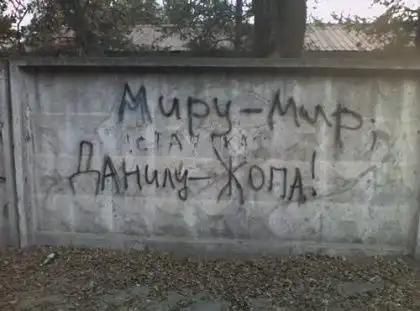 Миру-Мир,
Данилу-Жопа!